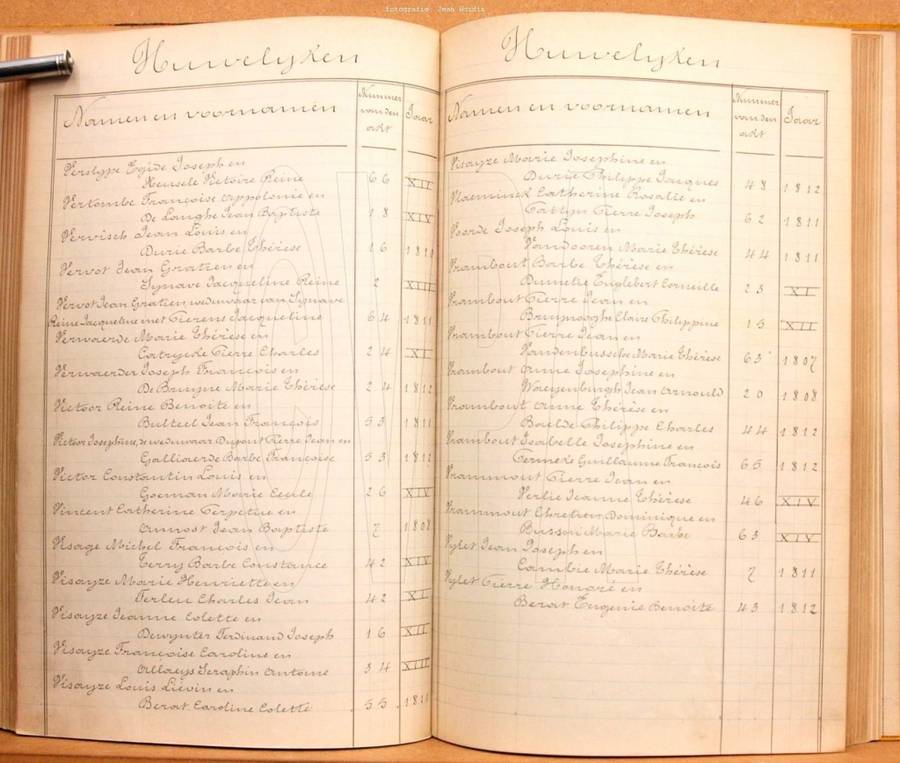 fotografie: Jean
Huwelyken
Namen en voornamen
Nummer van den akt
Jaar
Verslype Egide Joseph en
Heusele Victoire Reine 66 XII
Vertombe Françoise Appolonie en
De Langhe Jean Baptiste 18 XIV
Vervisch Jean Louis en
Durie Barbe Thérèse 16 1810
Vervot Jean Gratien en
Synave Jacqueline Reine 2 XIII
Vervot Jean Gratien weduwaar van Synave
Reine Jacqueline met Tierens Jacqueline 64 1811
Verwaerde Marie Thérèse en
Catrycke Pierre Charles 24 XI
Verwaerde Joseph François en
De Bruyne Marie Thérèse 24 1812
Victoor Reine Benoite en
Bulteel Jean François 53 1811
Victor Josephine, weduwaar Dupont Pierre Jean en
Galliaerde Barbe Françoise 53 1812
Victor Constantin Louis en
Goeman Marie Cecile 26 XIV
Vincent Catherine Perpetue en
Annost Jean Baptiste 7 1808
Visage Michel François en
Terry Barbe Constance 42 XIV
Visayze Marie Henriette en
Ferleu Charles Jean 42 XI
Visayze Jeanne Colette en
Dewynter Ferdinand Joseph 16 XII
Visayze Françoise Caroline en
Allaeys Seraphin Antoine 34 XIII
Visayze Louis Liévin en
Berat Caroline Colette 55 1811
Huwelyken
Namen en voornamen
Nummer van den akt
Jaar
Visayze Marie Josephine en
Durie Philippe Jacques 48 1812
Vlaeminck Catherine Rosalie en
Catlyn Pierre Joseph 62 1811
Voorde Joseph Louis en
Vandooren Marie Thérèse 44 1811
Vrambout Barbe Thérèse en
Dumeke Englebert Corneille 23 XI
Vrambout Pierre Jean en
Bruynooghe Claire Philippine 15 XII
Vrambout Pierre Jean en
Vandenbussche Marie Thérèse 63 1807
Vrambout Anne Josephine en
Waeyenburgh Jean Arnould 20 1808
Vrambout Anne Thérèse en
Baelde Philippe Charles 44 1812
Vrambout Isabelle Josephine en
Termeke Guillaume François 65 1812
Vrammout Pierre Jean en
Verlie Jeanne Thérèse 46 XIV
Vrammout Chretien Dominique en
Busson Marie Barbe 63 XIV
Vylet Jean Joseph en
Cambie Marie Thérèse 7 1811
Vylet Pierre Honoré en
Berat Eugenie Benoite 43 1812